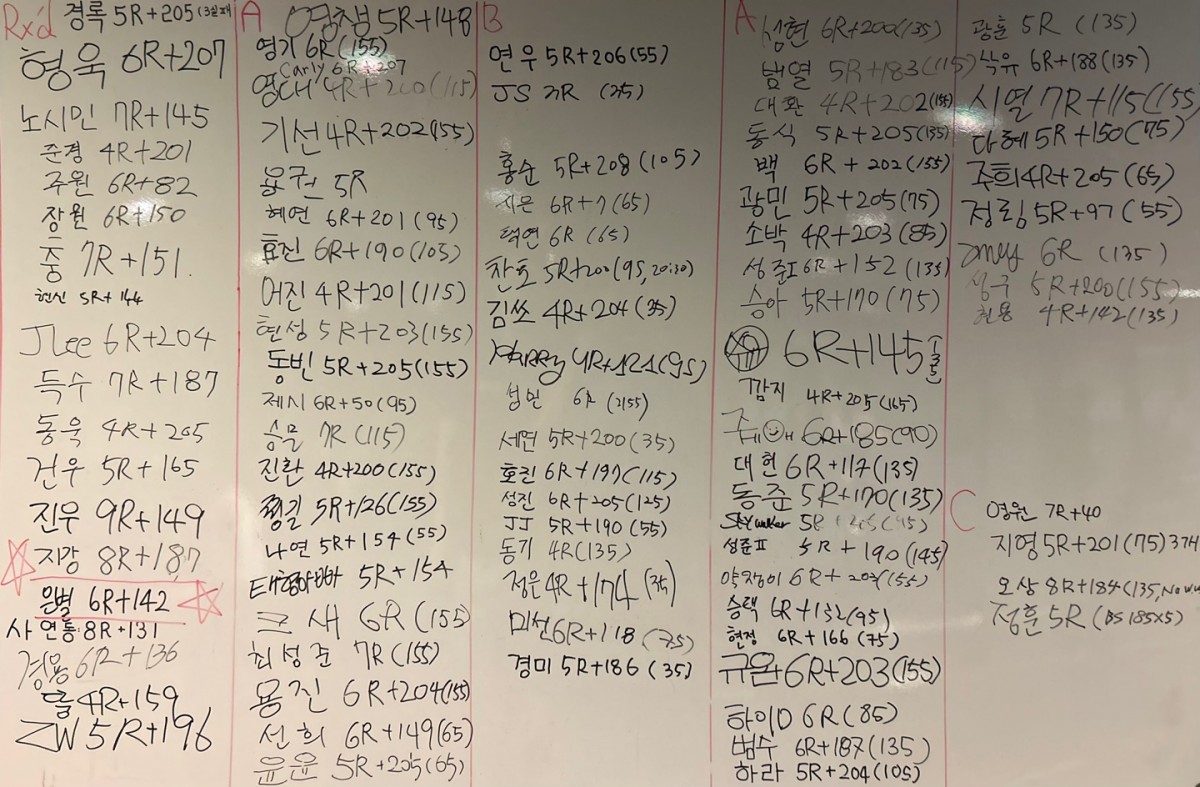 Rx'd
경록 5R+205
형욱 6R+207
노시민 7R+145
준경 4R+201
주원 6R+82
장원 6R+150
중 7R+151
현신 5R+144
JLee 6R+204
득수 7R+187
동욱 4R+205
건우 5R+165
진우 9R+149
지강 8R+187
은별 6R+142
사연통 8R+131
경용 6R+136
돌 4R+159
ZW 5R+196
A
영창 5R+148
영기 6R (155)
Carly 6R+207
영대 4R+200(115)
기선 4R+202(155)
용권 5R
혜연 6R+201 (95)
효진 6R+190(105)
어진 4R+201(115)
현성 5R+203(155)
동빈 5R+205(155)
제시 6R+50(95)
승물 7R (115)
진환 4R+200(155)
쩡길 5R+126(155)
나연 5R+154(55)
태형아빠 5R+154
크새 6R (155)
최성준 7R(155)
용진 6R+204(155)
선희 6R+149(65)
윤윤 5R+205(65)
B
연우 5R+206(55)
JS 7R (75)
홍순 5R+208 (105)
지은 6R+7(65)
택연 6R (65)
찬호 5R+200(95, 20:30)
김쏘 4R+204(35)
HARRy 4R+121(95)
성민 6R
세연 5R+200(35)
호진 6R+197(115)
성진 6R+205(125)
JJ 5R+190(55)
동기 4R(135)
정은 4R+174(75)
미선 6R+118 (75)
경미 5R+186 (35)
A
성현 6R+200(135)
범열 5R+183(115)
대환 4R+202(155)
동식 5R+205(135)
백 6R+202(155)
광민 5R+205(75)
소박 4R+203(85)
성준I 6R+152(135)
승아 5R+170(75)
6R+145
깜지 4R+205(165)
6R+185(90)
대헌 6R+117(135)
동준 5R+170(135)
Skywalker 5R
성준II 5R+190(145)
약쟁이 6R+
승택 6R+132(95)
현정 6R+166(75)
규온 6R+203(155)
하이D 6R(85)
범수 6R+187(135)
하라 5R+204(105)
광훈 5R (135)
삭유 6R+188(135)
시열 7R+115(155)
다혜 5R+150(75)
주희 4R+205(65)
정림 5R+97(55)
6R (135)
성구 5R+200(155)
천용 4R+142(135)
C
영원 7R+40
지영 5R+201(75)
오상 8R+184(135,
정훈 5R (BS 185x5)